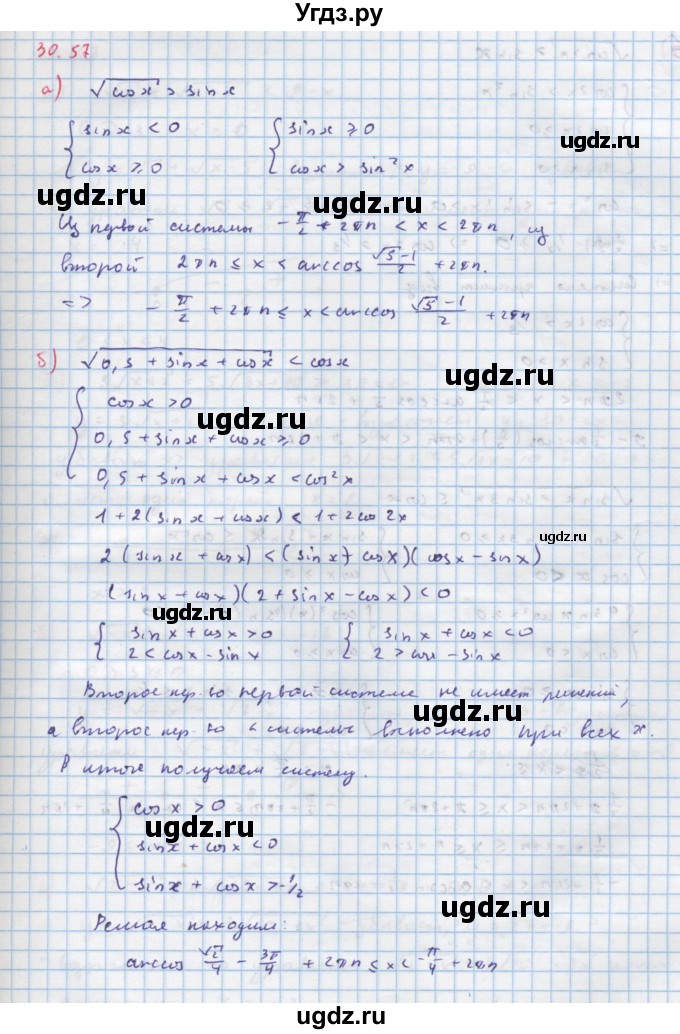 Угдз.ру
30.57
а) √cos x > sin x
{ sin x < 0 { sin x ⩾ 0
{ cos x ⩾ 0 { cos x > sin² x
ugdz.ru ugdz.ru
Из первой системы -π/2 + 2πn < x < 2πn, из
второй 2πn ⩽ x < arccos (√5-1)/2 + 2πn.
ugdz.ru
=> -π/2 + 2πn ⩽ x < arccos (√5-1)/2 + 2πn
б) √(0,5 + sin x + cos x) < cos x
ugdz.ru
{ cos x > 0
ugdz.ru
{ 0,5 + sin x + cos x ⩾ 0
{ 0,5 + sin x + cos x < cos² x
1 + 2(sin x + cos x) < 1 + 2cos 2x
ugdz.ru
2(sin x + cos x) < (sin x + cos x)(cos x - sin x)
(sin x + cos x)(2 + sin x - cos x) < 0
ugdz.ru
{ sin x + cos x > 0 { sin x + cos x < 0
{ 2 < cos x - sin x { 2 > cos x - sin x
Второе нер-во первой системе не имеет решений,
ugdz.ru
а второе нер-во системы выполнено при всех x.
В итоге получаем систему.
{ cos x > 0
ugdz.ru ugdz.ru
{ sin x + cos x < 0
{ sin x + cos x > -1/2
Решая находим:
ugdz.ru
arccos √2/4 - 3π/4 + 2πn ⩽ x < -π/4 + 2πn